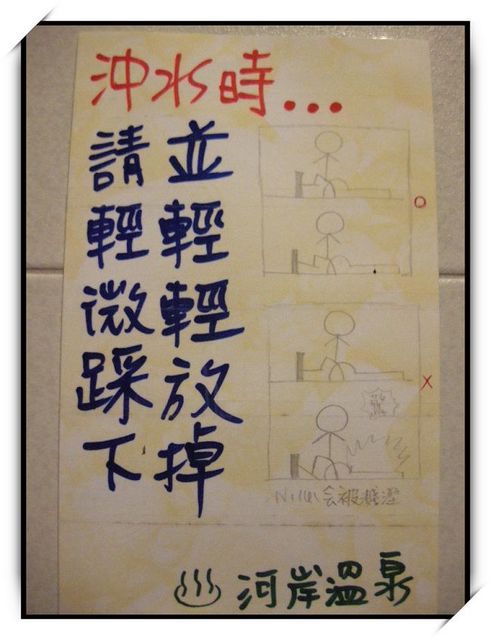 沖水時...
請輕微踩下
並輕輕放掉
O
X
会被
河岸溫泉